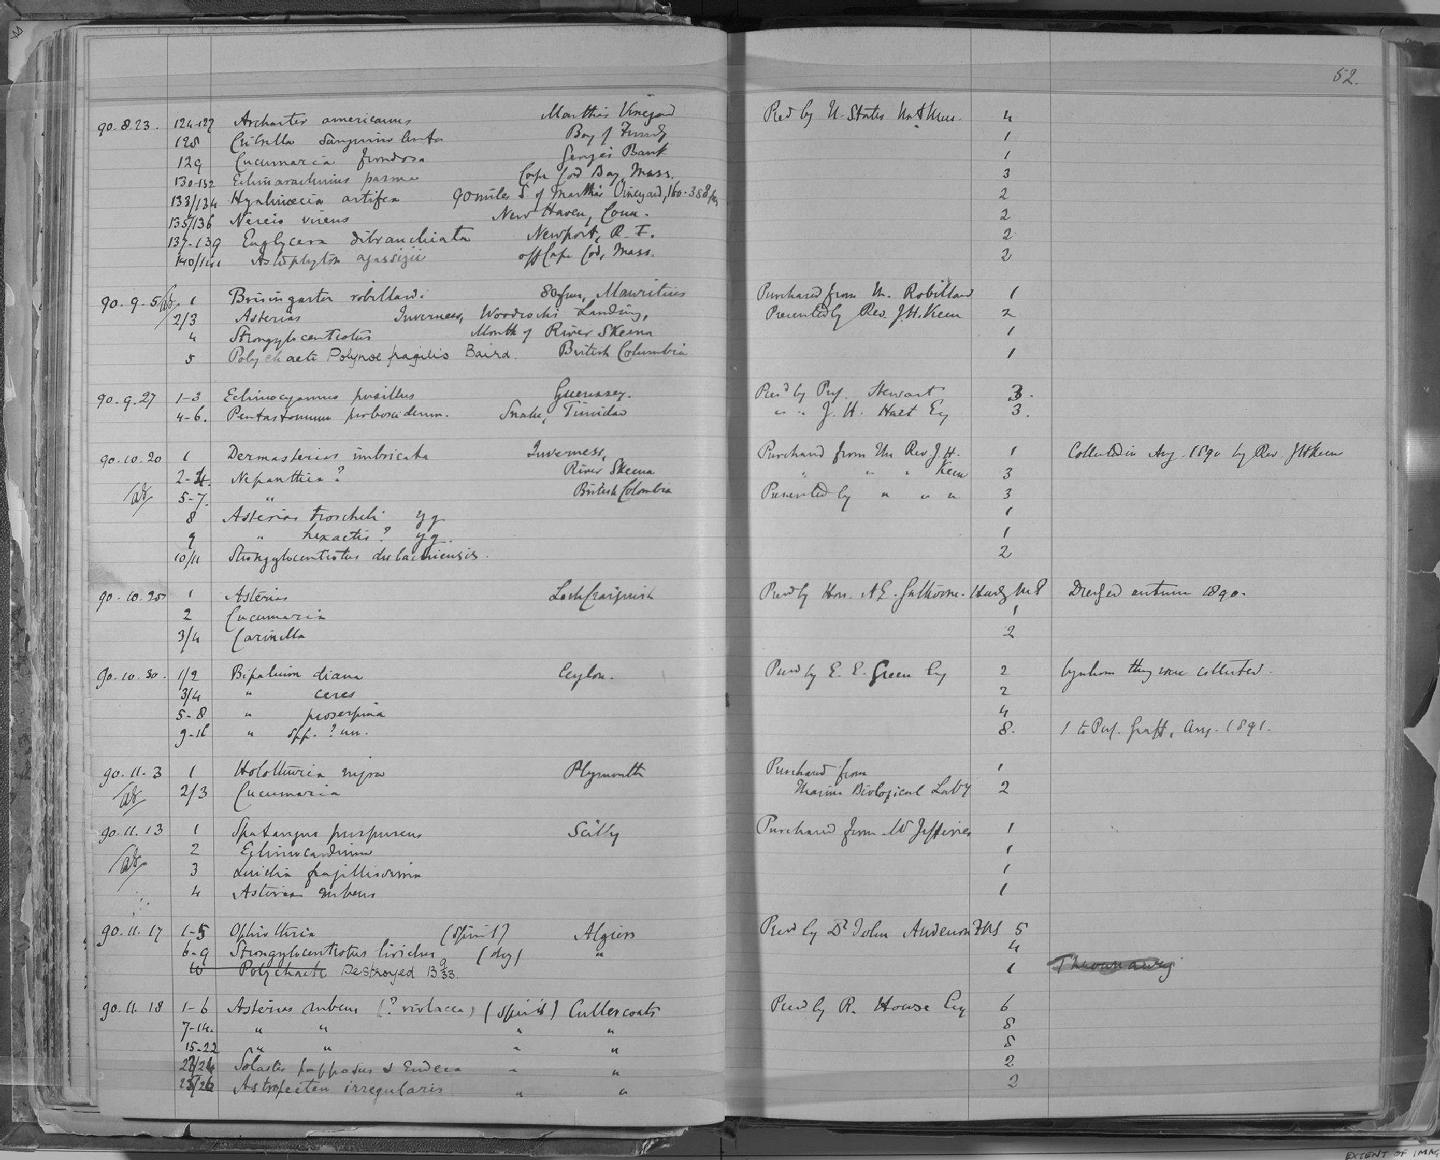 52.
90.8.23. 124-127 Archaster americanus Marthas Vineyard Pres by U. States Nat Mus. 4
128 Cribrella sanguinolenta Bay of Fundy 1
129 Cucumaria frondosa Georges Bank 1
130-132 Echinarachnius parma Cape Cod Bay, Mass. 3
133/134 Hyalinœcia artifex 90 miles S of Marthas Vineyard, 160-388 fm 2
135/136 Nereis virens New Haven, Conn. 2
137-139 Euglycera dibranchiata Newport, R. I. 2
140/141 Astrophyton agassizii off Cape Cod, Mass. 2
90.9.5 1 Brisingaster robillardi 80 fms, Mauritius Purchased from M. Robillard 1
2/3 Asterias Inverness, Woodcocks Landing, Presented by Rev. J.H. Keen 2
4 Strongylocentrotus Mouth of River Skeena 1
5 Polychaete Polynoe fragilis Baird. British Columbia 1
90.9.27 1-3 Echinocyamus pusillus Guernsey. Pres'd by Prof. Stewart 3.
4-6. Pentastomum proboscideum. Snake, Trinidad " " J. H. Hart Esq 3.
90.10.20 1 Dermasterias imbricata Inverness, Purchased from the Rev J.H. 1 Collected in Aug. 1890 by Rev J H Keen
2-4. Nepanthia? River Skeena " " " Keen 3
5-7. " British Colombia Presented by " " " 3
8 Asterias troscheli yg. 1
9 " hexactis? yg. 1
10/11 Strongylocentrotus drobachiensis. 2
90.10.25 1 Asterias Loch Craignish Pres'd by Hon. A E. Gathorne-Hardy M P Dredged autumn 1890.
2 Cucumaria 1
3/4 Carinella 2
90.10.30. 1/2 Bipalium diana Ceylon. Pres'd by E. E. Green Esq 2 by whom they were collected.
3/4 " ceres 2
5-8 " proserpina 4
9-16 " spp. ? nn. 8. 1 to Prof. Graff, Aug. 1891.
90.11.3 1 Holothuria nigra Plymouth Purchased from 1
2/3 Cucumaria Marine Biological Laby 2
90.11.13 1 Spatangus purpureus Scilly Purchased from W Jefferies 1
2 Echinocardium 1
3 Luidia fragilissima 1
4 Asterias rubens 1
90.11.17 1-5 Ophiothrix (spirit) Algiers Pres'd by Dr John Anderson FRS 5
6-9 Strongylocentrotus lividus (dry) " 4
10 Polychaete Destroyed 13/9/33. 1 Thrown away
90.11.18 1-6 Asterias rubens (? violacea) (spirit) Cullercoats Pres'd by R. Howse Esq 6
7-14. " " " " 8
15-22 " " " " 8
23/24 Solaster papposus & Endeca " " 2
25/26 Astropecten irregularis " " 2
EXTENT OF IMAG